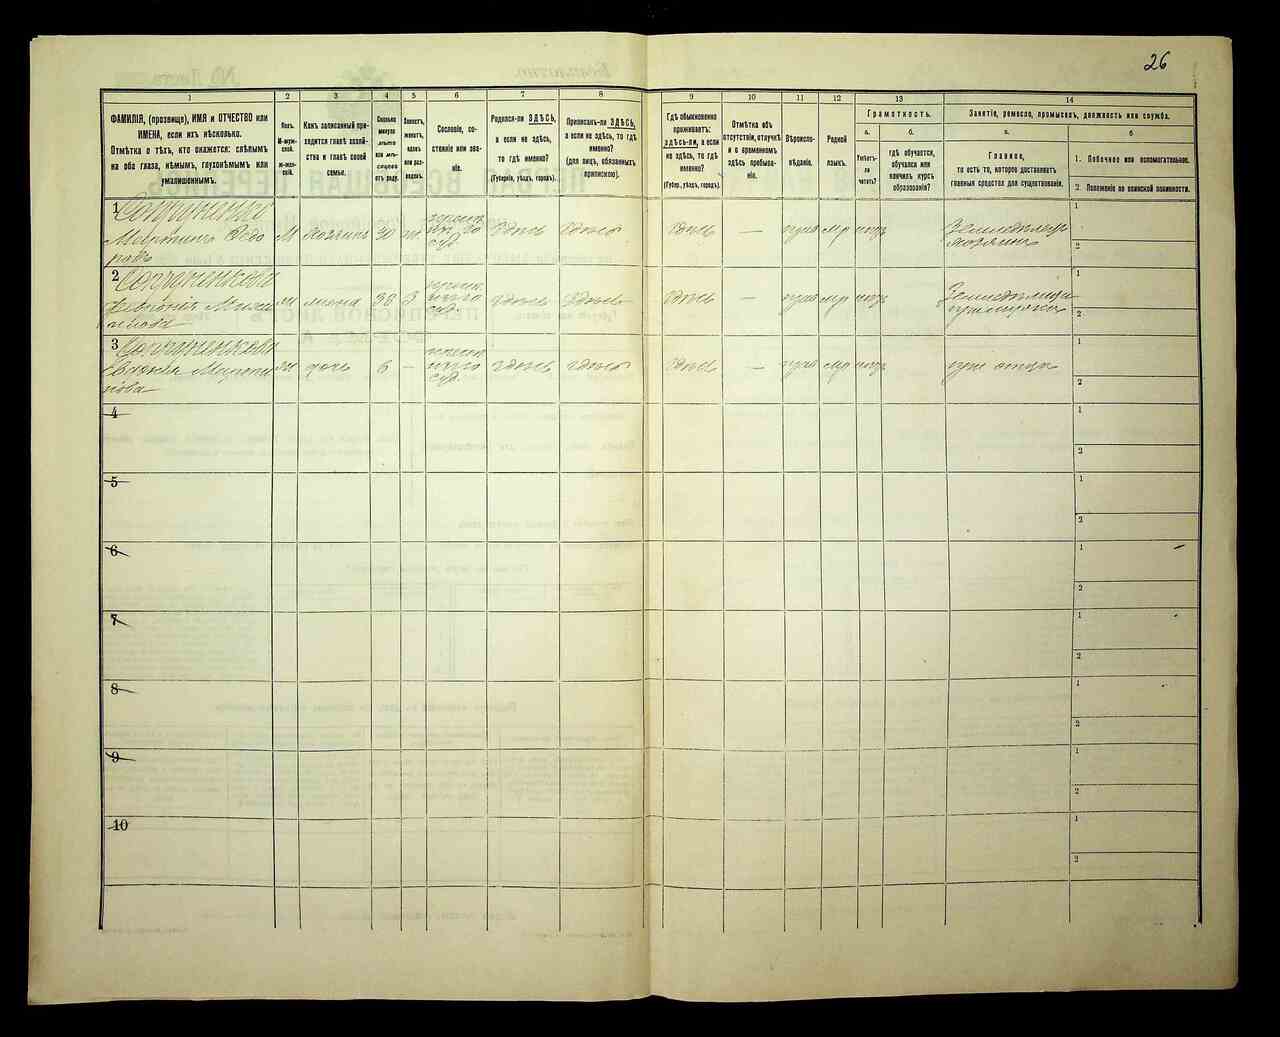 26
1
2
3
4
5
6
7
8
9
10
11
12
13
14
ФАМИЛІЯ, (прозвище), ИМЯ и ОТЧЕСТВО или
ИМЕНА, если ихъ нѣсколько.
Отмѣтка о тѣхъ, кто окажется: слѣпымъ
на оба глаза, нѣмымъ, глухонѣмымъ или
умалишеннымъ.
Полъ.
М-муж-
ской.
Ж-жен-
скій.
Какъ записанный при-
ходится главѣ хозяй-
ства и главѣ своей
семьи.
Сколько
минуло
лѣтъ
или мѣ-
сяцевъ
отъ роду.
Холостъ,
женатъ,
вдовъ
или раз-
веденъ.
Сословіе, со-
стояніе или зва-
ніе.
Родился-ли ЗДѢСЬ,
а если не здѣсь,
то гдѣ именно?
(Губернія, уѣздъ, городъ).
Приписанъ-ли ЗДѢСЬ,
а если не здѣсь, то гдѣ
именно?
(для лицъ, обязанныхъ
припиской).
Гдѣ обыкновенно
проживаетъ:
здѣсь-ли, а если
не здѣсь, то гдѣ
именно?
(Губер., уѣздъ, городъ).
Отмѣтка объ
отсутствіи, отлучкѣ
и о временномъ
здѣсь пребыва-
ніи.
Вѣроиспо-
вѣданіе.
Родной
языкъ.
Грамотность.
а.
б.
Умѣетъ-
ли
читать?
гдѣ обучается,
обучался или
кончилъ курсъ
образованія?
Занятіе, ремесло, промыселъ, должность или служба.
а.
б
Главное,
то есть то, которое доставляетъ
главныя средства для существованія.
1. Побочное или вспомогательное.
2. Положеніе по воинской повинности.
1
Мартинъ Ѳедо
ровъ
М
хозяинъ
30
ж.
здѣсь
здѣсь
здѣсь
—
прав
мр
нтъ
Земледѣлецъ
хозяинъ
1
2
2
Михай
лова
ж
жена
30
З
здѣсь
здѣсь
здѣсь
—
прав
мр
нтъ
1
2
3
Марти
нова
ж
дочь
6
—
здѣсь
здѣсь
здѣсь
—
прав
мр
нтъ
при отцѣ
1
2
4
1
2
5
1
2
6
1
2
7
1
2
8
1
2
9
1
2
10
1
2